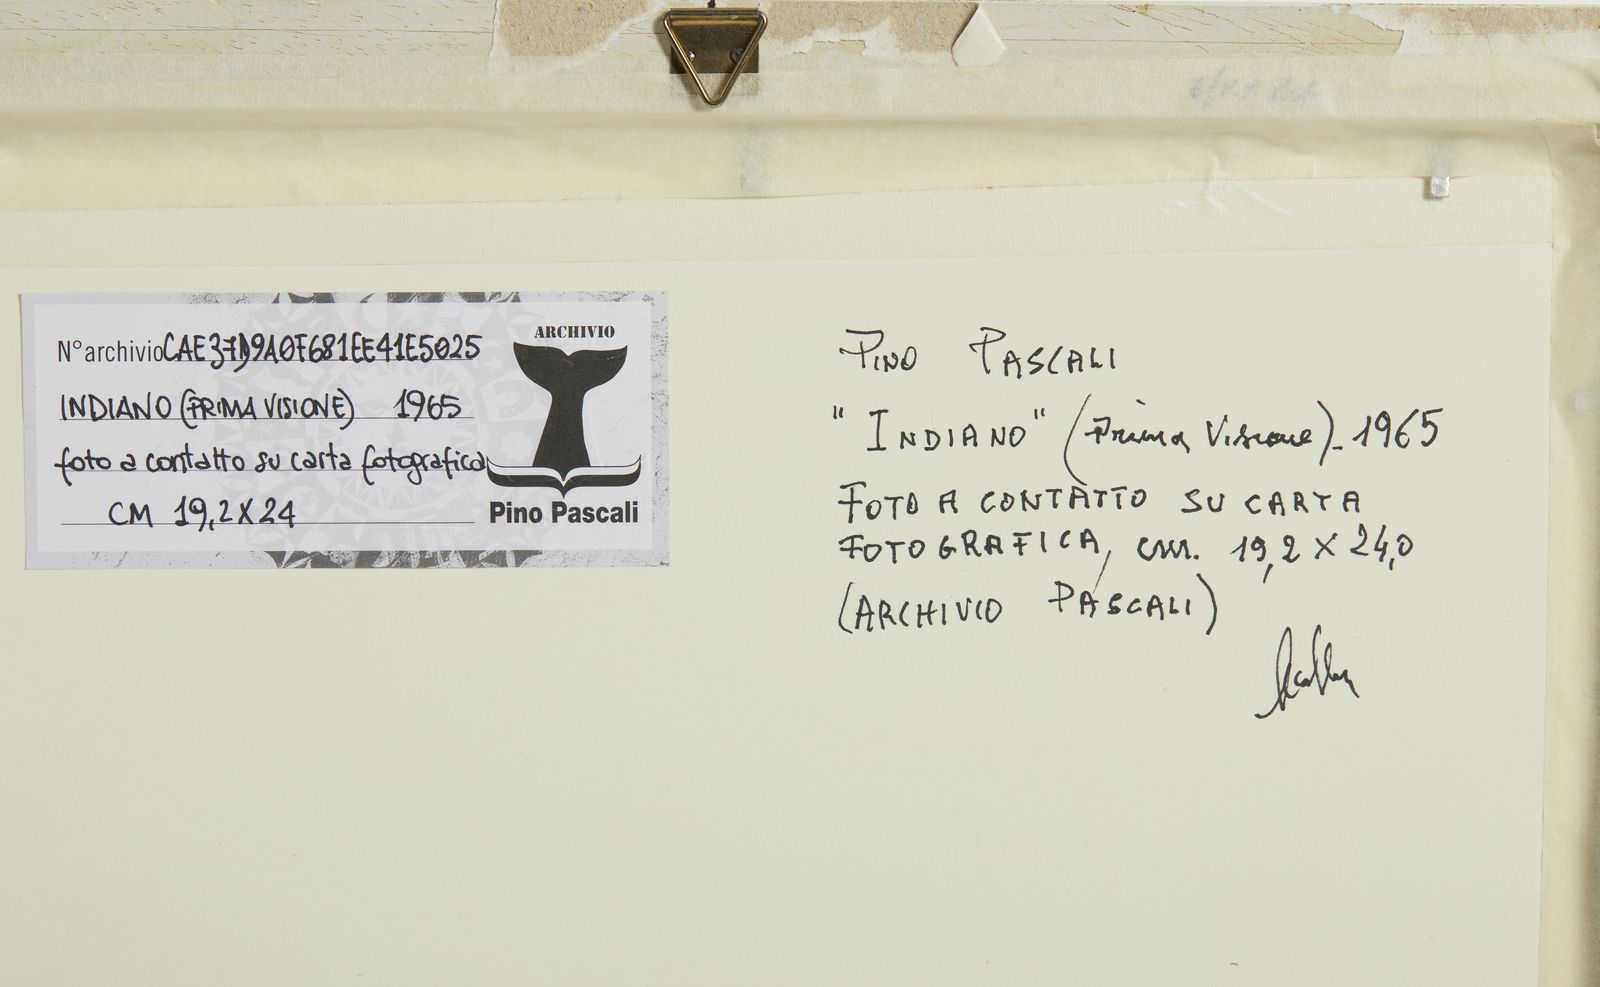 N° archivio CAE37D9A0F681EE41E5025
INDIANO (PRIMA VISIONE) 1965
foto a contatto su carta fotografica
CM 19,2 X 24
ARCHIVIO
Pino Pascali
PINO PASCALI
"INDIANO" (Prima Visione) - 1965
FOTO A CONTATTO SU CARTA
FOTOGRAFICA, cm. 19,2 X 24,0
(ARCHIVIO PASCALI)